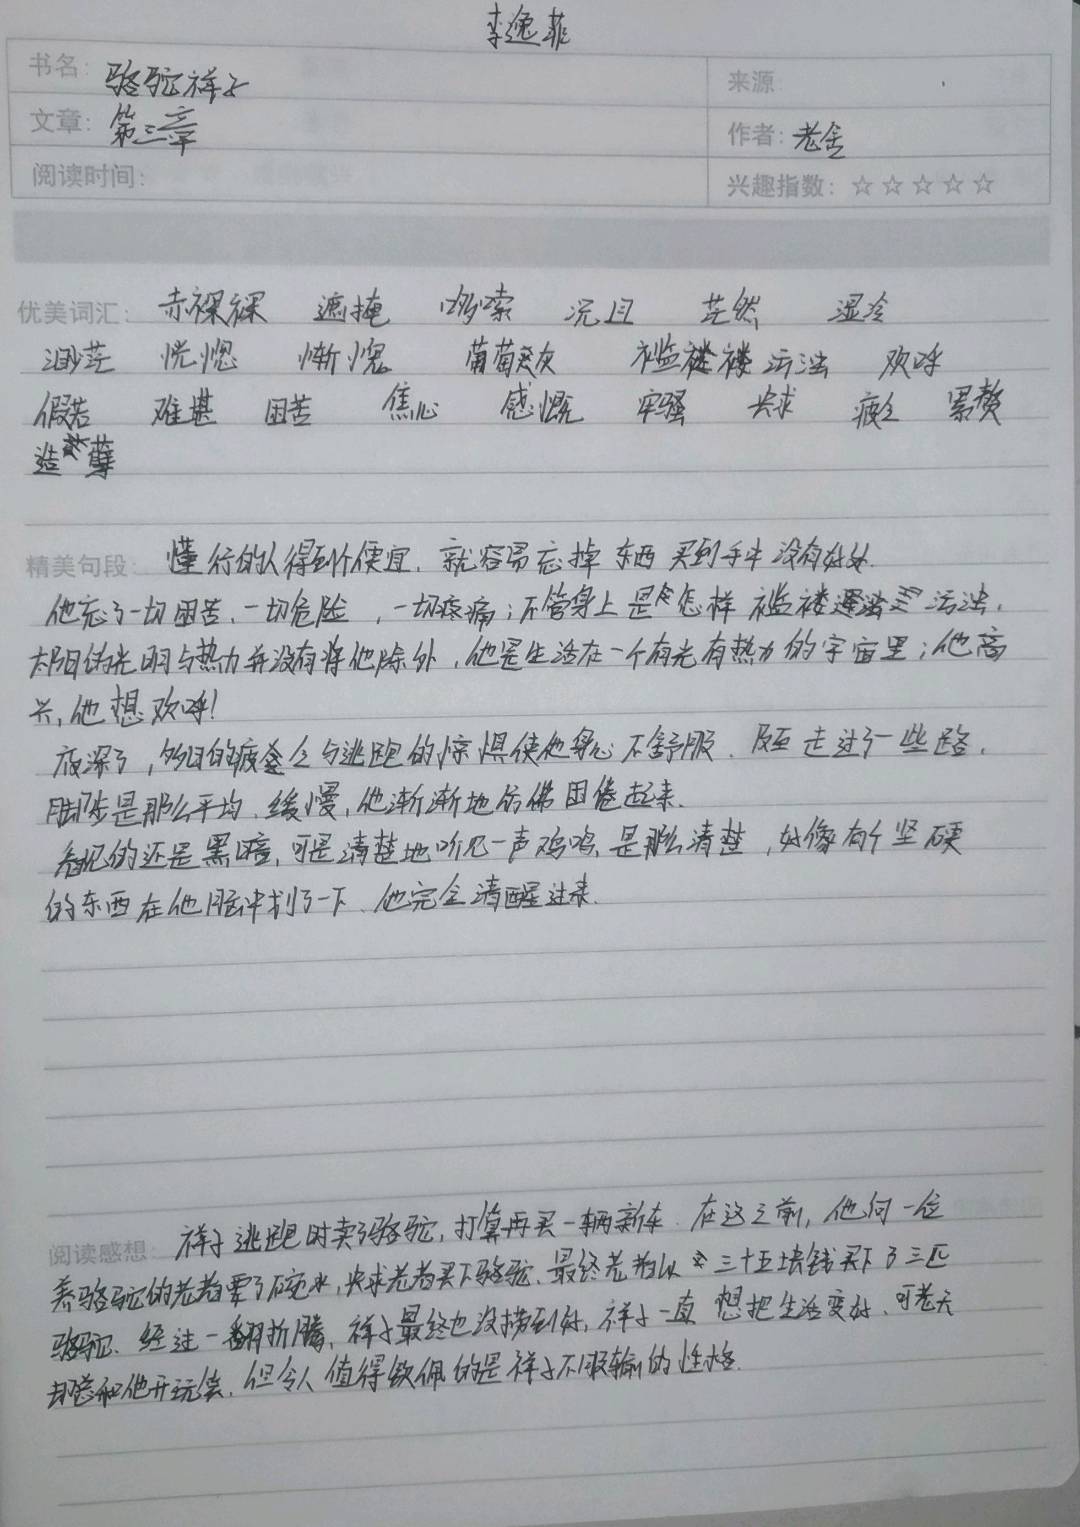 李逸菲
书名: 骆驼祥子
来源
文章: 第三章
作者: 老舍
阅读时间:
兴趣指数: ☆☆☆☆☆
优美词汇: 赤裸裸 遮掩 哆嗦 况且 茫然 湿冷
渺茫 恍惚 惭愧 葡萄灰 褴褛 污浊 欢呼
假若 难堪 困苦 焦心 感慨 牢骚 央求 疲乏 累赘
造孽
精美句段: 懂行的人得到个便宜,就容易忘掉东西买到手中没有好处.
他忘了一切困苦,一切危险,一切疼痛;不管身上是怎样褴褛污浊,
太阳的光明与热力并没有将他除外,他是生活在一个有光有热力的宇宙里;他高
兴,他想欢呼!
夜深了,多日的疲乏与逃跑的惊惧使他身心不舒服.及至走过了一些路,
脚步是那么平均,缓慢,他渐渐地仿佛困倦起来.
看见的还是黑暗,可是清楚地听见一声鸡鸣,是那么清楚,好像有个坚硬
的东西在他脑中划了一下.他完全清醒过来.
阅读感想: 祥子逃跑时卖了骆驼,打算再买一辆新车.在这之前,他向一位
养骆驼的老者要了碗水,央求老者买下骆驼.最终老者以三十五块钱买下了三匹
骆驼.经过一翻折腾,祥子最终也没捞到好,祥子一直想把生活变好,可老天
却总和他开玩笑.但令人值得钦佩的是祥子不服输的性格.